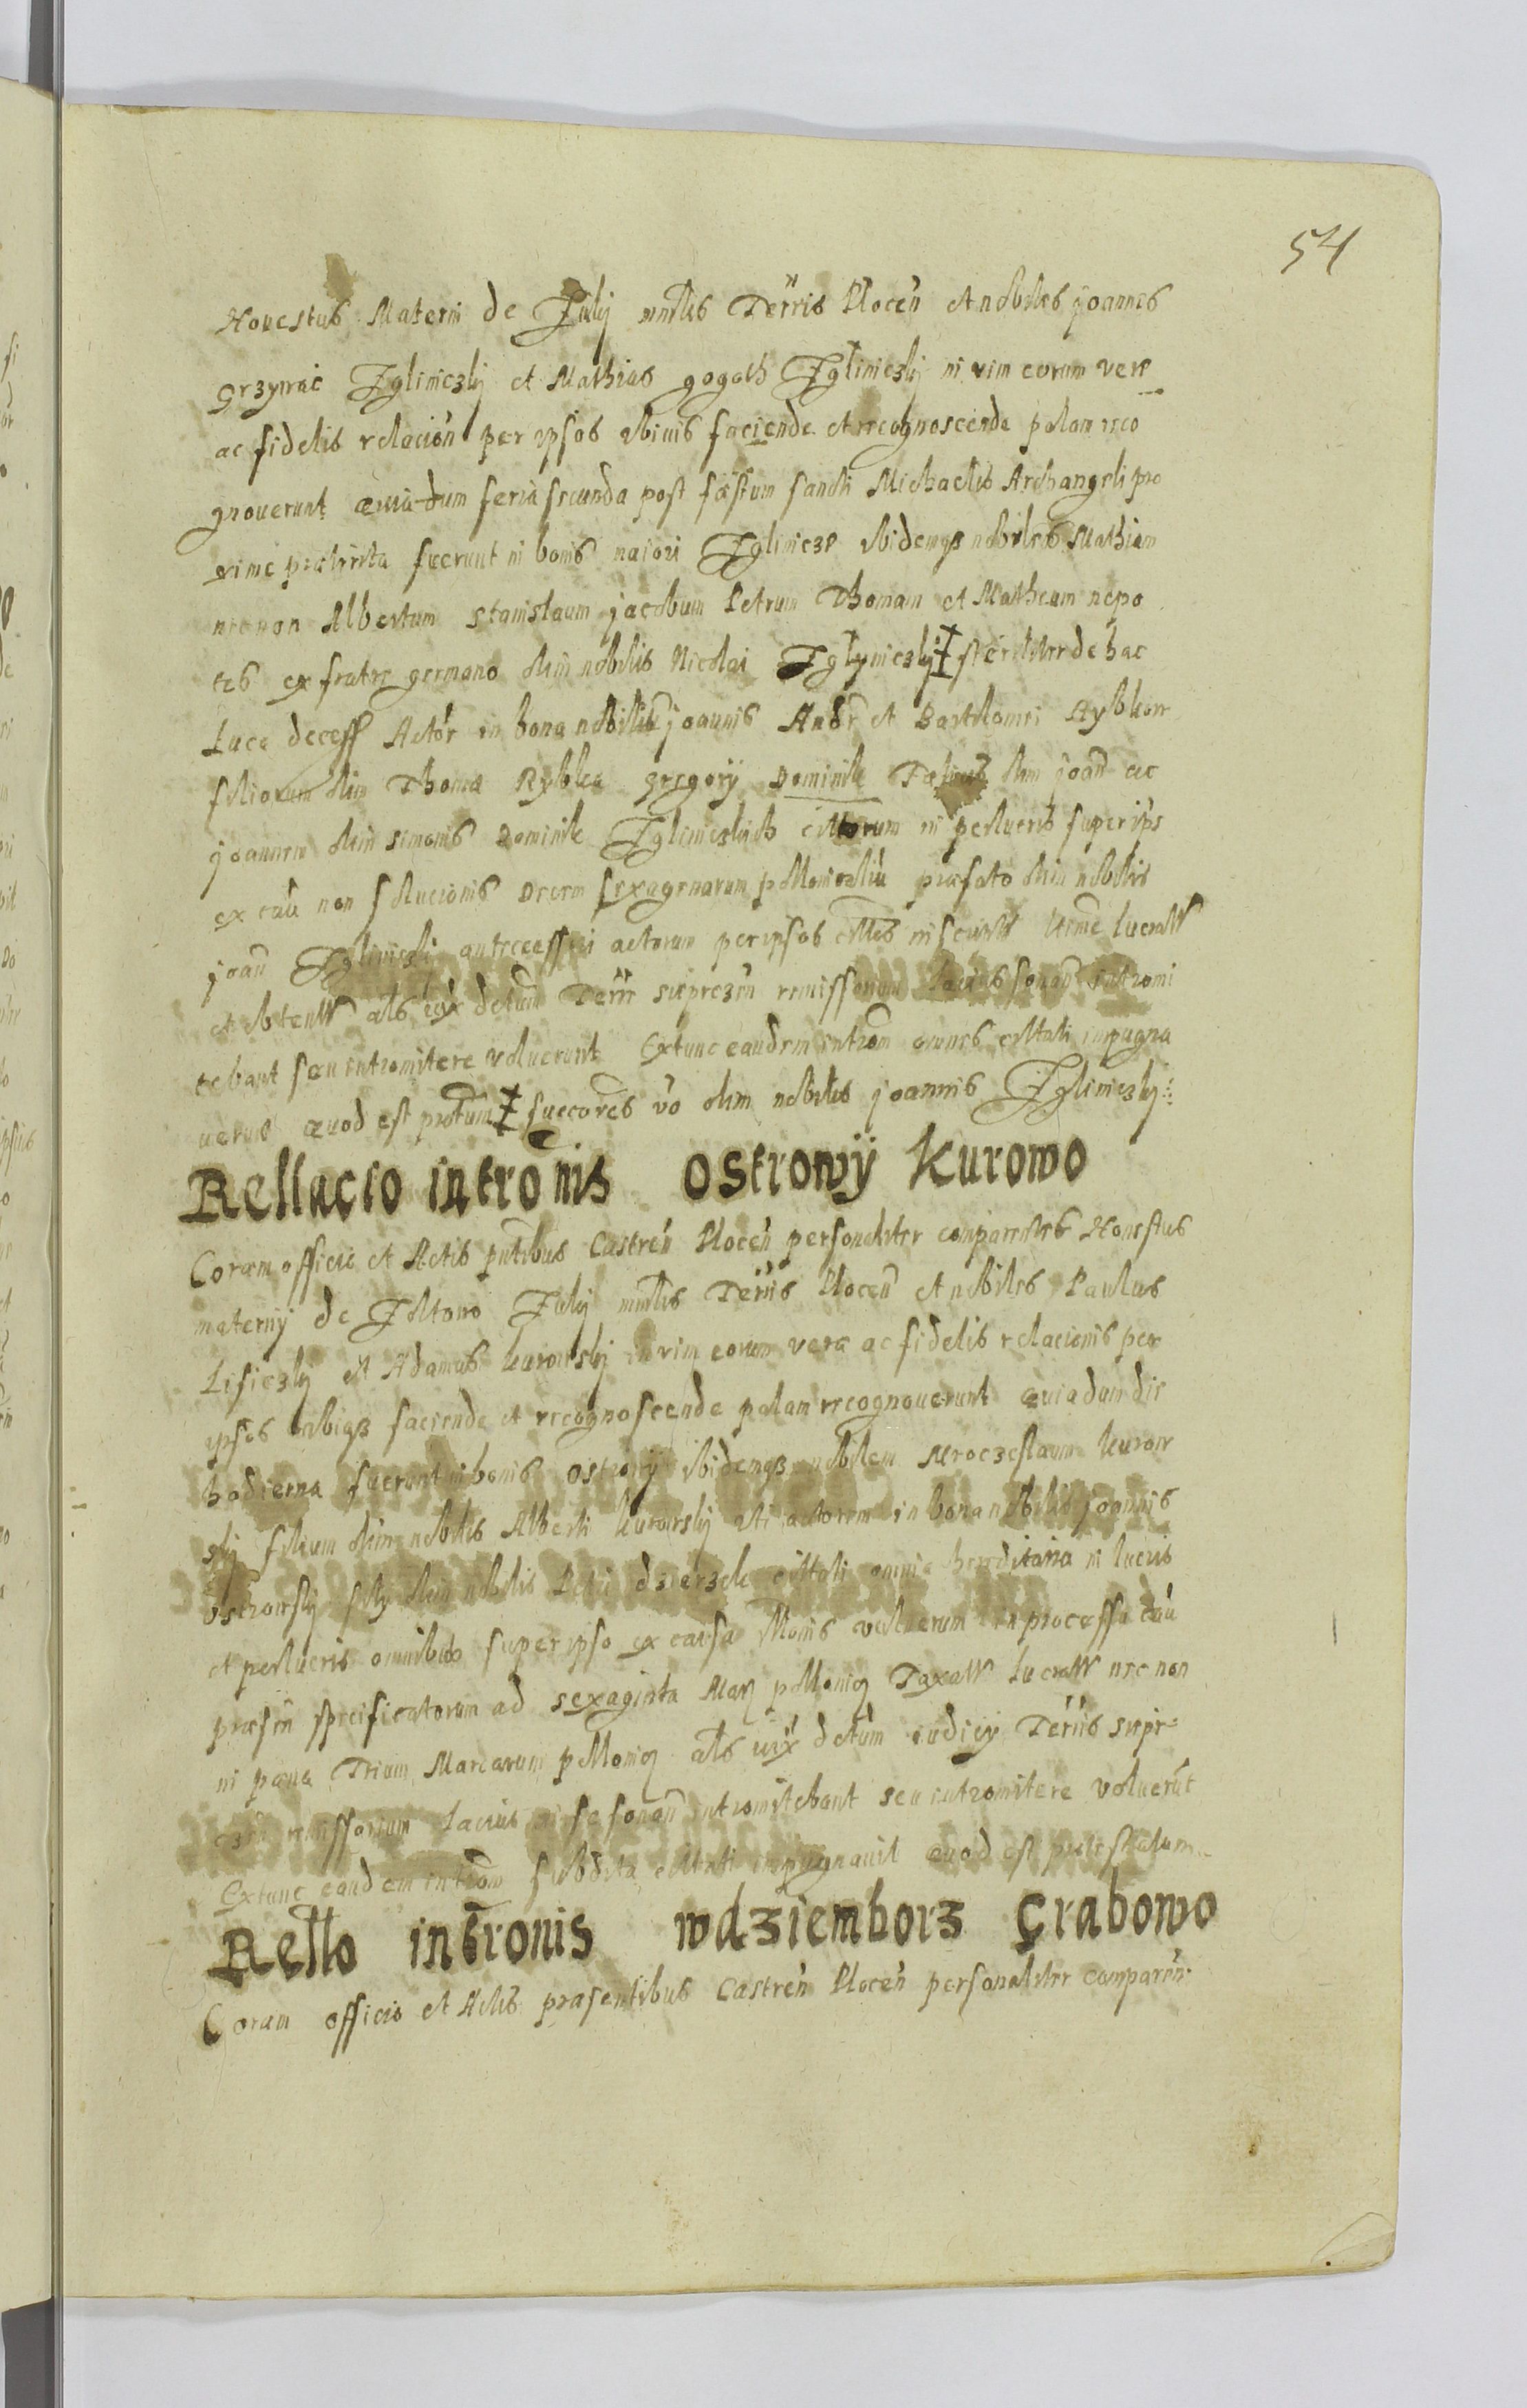 54
Honestus Materni de Zuly mrlis Terris Plocen et nobiles joannes
grzywac Zgliniczky et Mathias gogoth Zgliniczky in vim eorum vere
ac fidelis relacion per ipsos ubivis faciende et recognoscende palam reco
gnouerunt quia dum feria secunda post fæstum sancti Michaelis Archangeli pro
xime præterita fuerunt in bonis maiori Zglinicze ibidemqз nobiles Mathiam
nec non Albertum Stanislaum jacobum Petrum Thomam et Matheum nepo
tes ex fratre germano olim nobilis Nicolai Zglyniczky steriliter de hac
Luce decess Actor in bona nobilium joannis Andr et Bartolomei Rybkow
filiorum olim Thoma Rybka gregory Dominik olim joan ac
joannem olim simonis Dominik Zgliniczkich citatorum in perlucris super ips
ex cau non solucionis decem sexagenarum pollonicaliu præfato olim nobilis
joan Zgliniczki antecessori actorum per ipsos lucratt
et obtentt als decretum Terr præsen remissorum lacius sonan intromi
tebant seu intromitere voluerunt Extunc eandem introm omnes citati impugna
uerunt quod est protum succores vo olim nobilis joannis Zgliniczky
Rellacio intronis Ostrowÿ Kurowo
Coram officio et Actis pntibus Castren Plocen personaliter comparentes Honestus
maternÿ de Zuly Terris Plocen et nobiles Paulus
Lisiczky et Adamus kurowsky in vim eorum vera ac fidelis relacionis per
ipsos ubiqз faciende et recognoscende palam recognouerunt quia dum die
hodierna fuerunt in bonis Ostrowÿ ibidemqз nobilem Mroczeslaum kurow
sky filium olim nobilis Alberti kurowsky uti actorem in bona nobilis joannis
Ostrowsky fily olim nobilis Petri citati omnia hereditaria in lucris
et perlucris omnibus super ipso ex causa in processu cau
præsen specificatorum ad sexaginta Mar pollonic Taxatt lucratt nec non
in pæna Trium Marcarum pollonic als decretum iudicÿ Terris supre
remissorium lacius in se sonan intromitebant seu intromitere voluerut
Extunc eandem introm subdita citati impugnauit quod est protestatum
Rello intronis wdziemborz Grabowo
Coram officio et Actis præsentibus Castren Plocen personaliter comparen